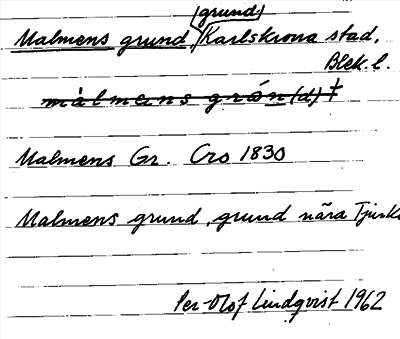 (grund)
Malmens grund, Karlskrona stad,
Blek. l.
màlmens grón (d) ‡
Malmens Gr. Cro 1830
Malmens grund, grund nära Tjurkö
Per-Olof Lindqvist 1962